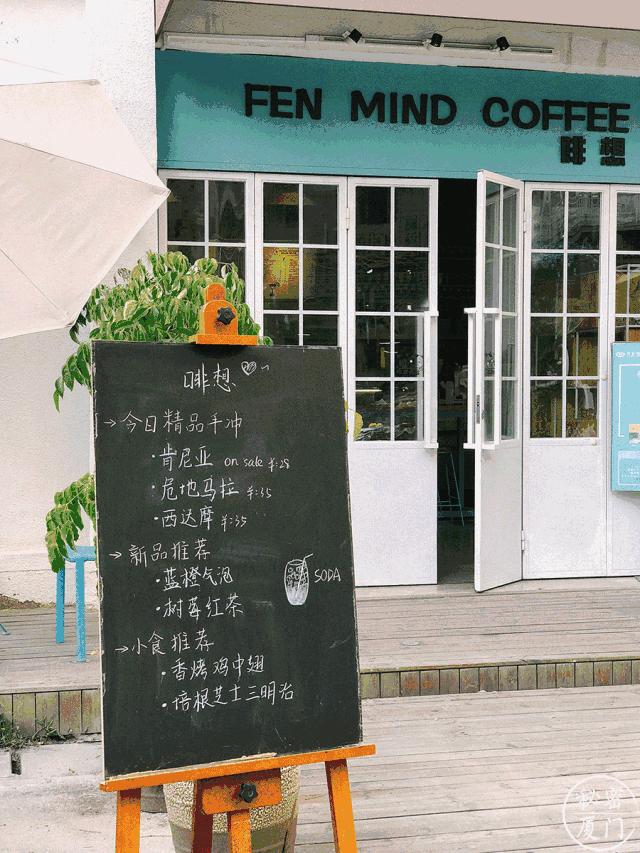 FEN MIND COFFEE
啡想
啡想
→今日精品手冲
·肯尼亚 on sale ¥:28
·危地马拉 ¥:35
·西达摩 ¥:35
→新品推荐
·蓝橙气泡
SODA
·树莓红茶
→小食推荐
·香烤鸡中翅
·培根芝士三明治
秘密
厦门